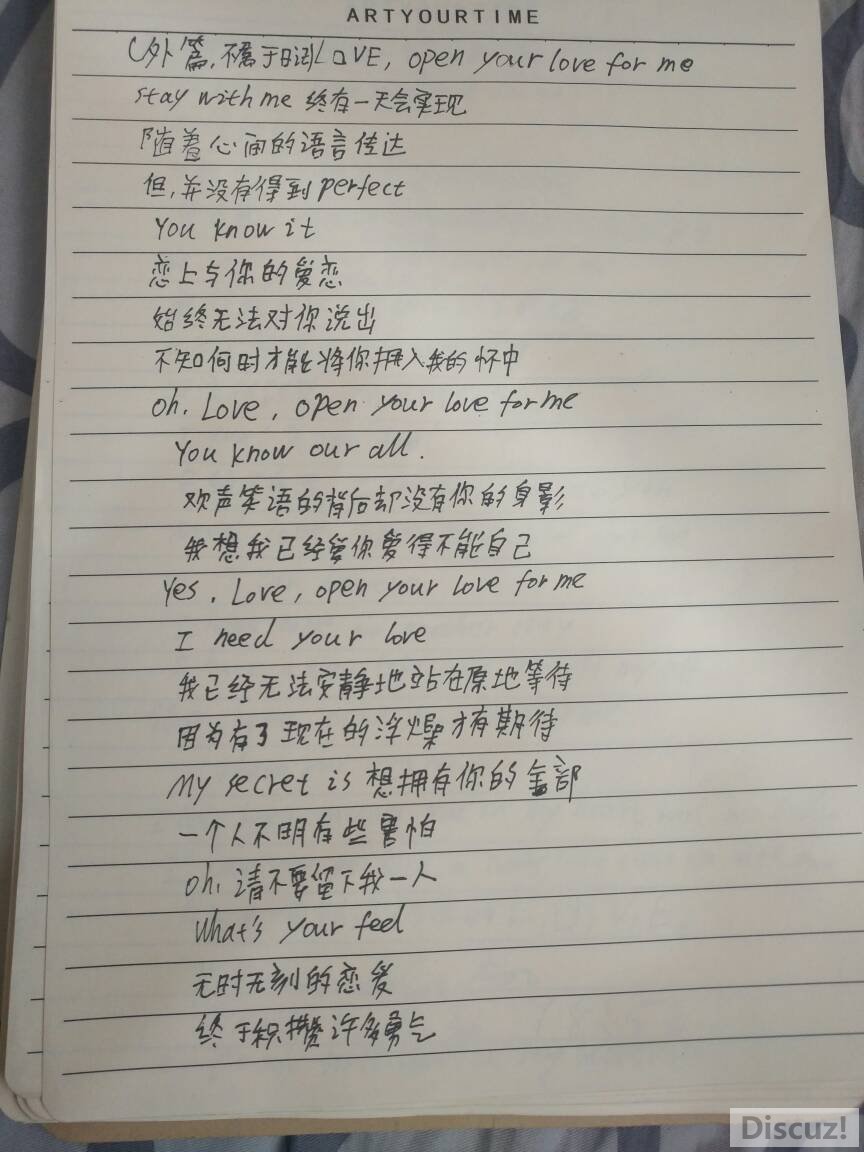 ARTYOURTIME
(外篇,不属于日语LOVE, open your love for me
stay with me 终有一天会实现
随着心间的语言传达
但,并没有得到perfect
You know it
恋上与你的爱恋
始终无法对你说出
不知何时才能将你拥入我的怀中
oh. Love, open your love for me
You know our all.
欢声笑语的背后却没有你的身影
我想我已经爱你爱得不能自己
Yes. Love, open your love for me
I need your love
我已经无法安静地站在原地等待
因为有了现在的浮燥才有期待
My secret is 想拥有你的全部
一个人不明有些害怕
oh, 请不要留下我一人
What's your feel
无时无刻的恋爱
终于积攒许多勇气
Discuz!